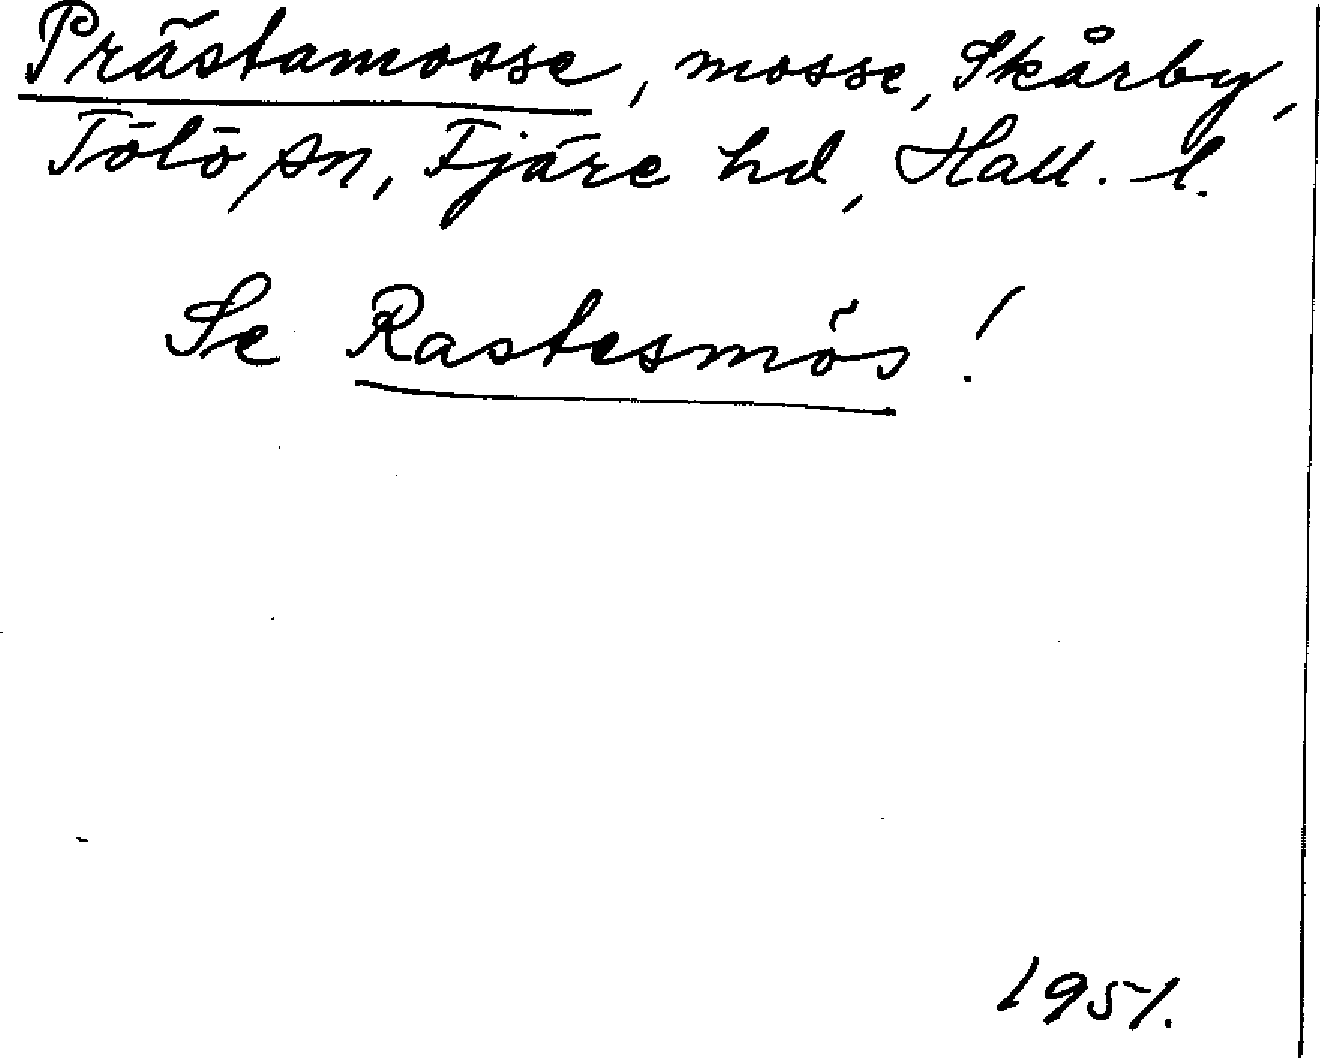 Prästamosse, mosse, Skårby,
Tölö sn, Fjäre hd, Hall. l.
Se Rastesmós!
1951.